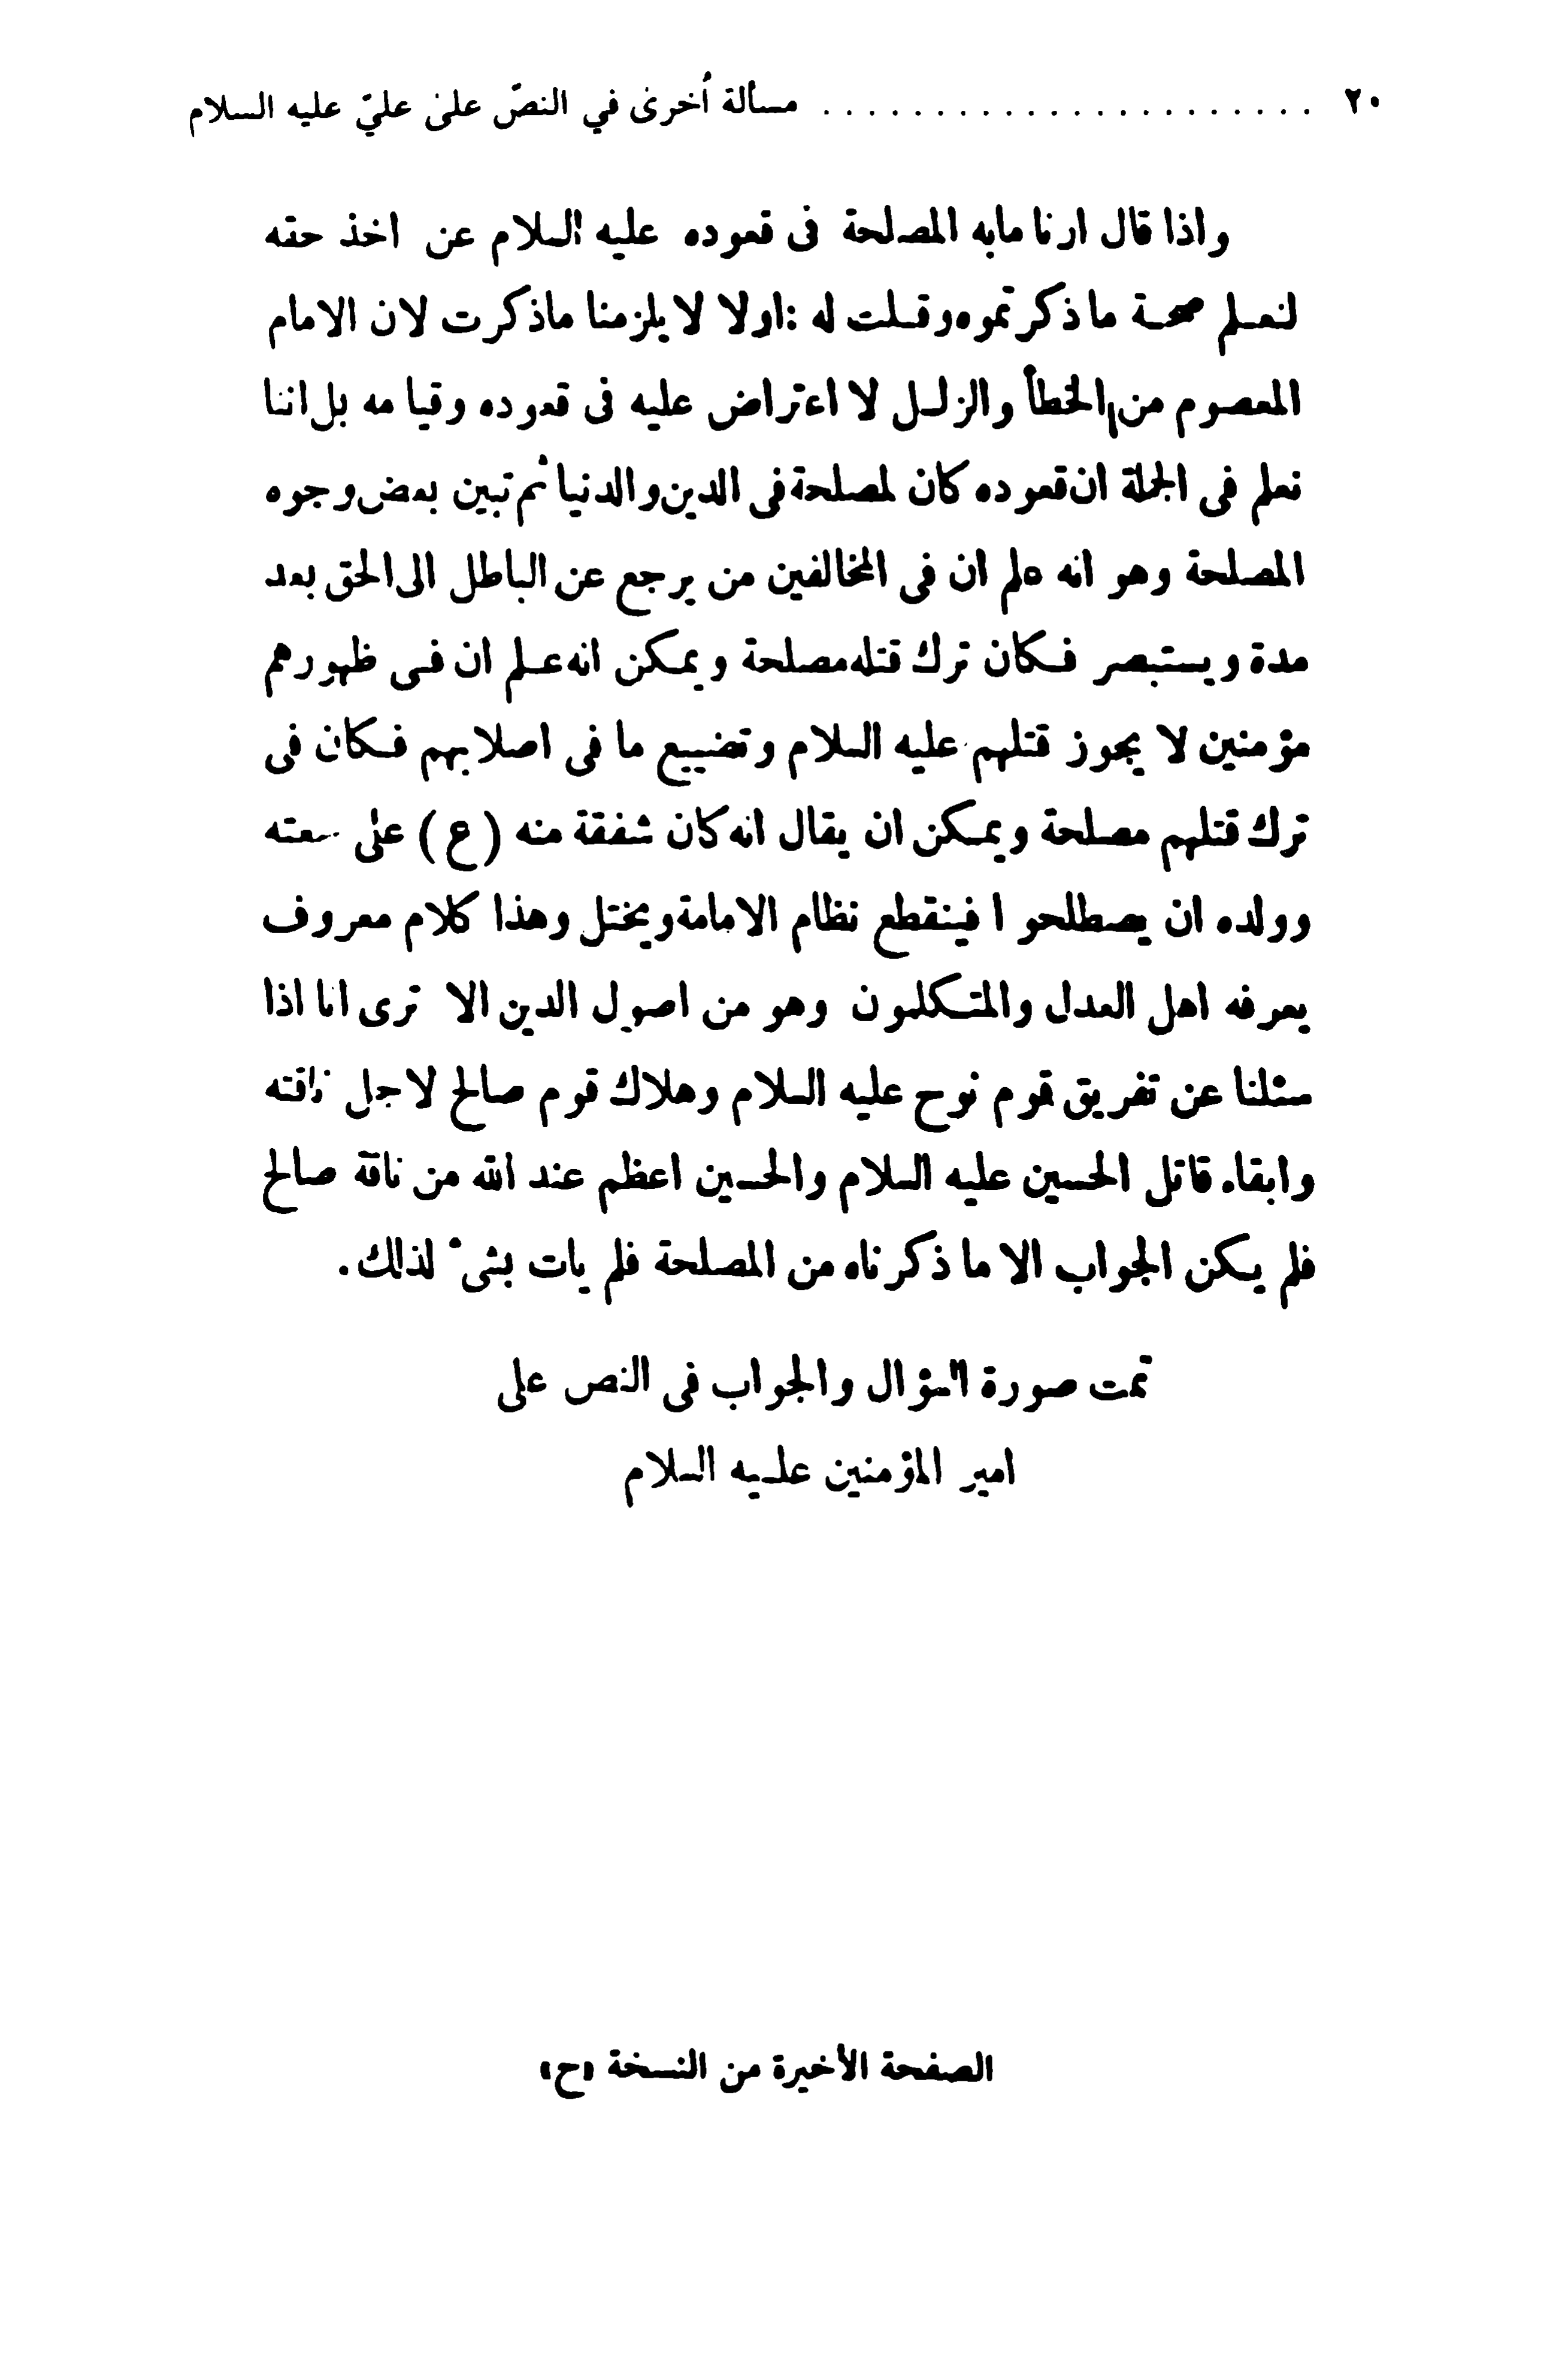 ٢٠ ...................... مسألة أخرىٰ في النصّ علىٰ عليّ عليه السلام
واذا قال ارنا مابه المصلحة فى قعوده عليه السلام عن اخذ حقه
لنعلم صحة ما ذكرتموه وقلت له :اولا لا يلزمنا ماذكرت لان الامام
المعصوم من الخطأ والزلل لا اعتراض عليه فى قعوده وقيامه بل اننا
نعلم فى الجملة ان قعوده كان لمصلحة فى الدين والدنيا ثم تبين بعض وجوه
المصلحة وهو انه علم ان فى المخالفين من يرجع عن الباطل الى الحق بعد
مدة ويستبصر فكان ترك قتله مصلحة ويمكن انه علم ان فى ظهورهم
مؤمنين لا يجوز قتلهم عليه السلام وتضييع ما فى اصلابهم فكان فى
ترك قتلهم مصلحة ويمكن ان يقال انه كان شفقة منه (ع) على
وولده ان يصطلحوا فينقطع نظام الامامة ويختل وهذا كلام معروف
يعرفه اهل العدل والمتكلمون وهو من اصول الدين الا ترى انا اذا
سئلنا عن تفريق قوم نوح عليه السلام وهلاك قوم صالح لاجل ناقته
وابقاء قاتل الحسين عليه السلام والحسين اعظم عند الله من ناقة صالح
فلم يكن الجواب الا ما ذكرناه من المصلحة فلم يات بشىء لذلك.
تمت صورة السؤال والجواب فى النص على
امير المؤمنين عليه السلام
الصفحة الأخيرة من النسخة «ح»